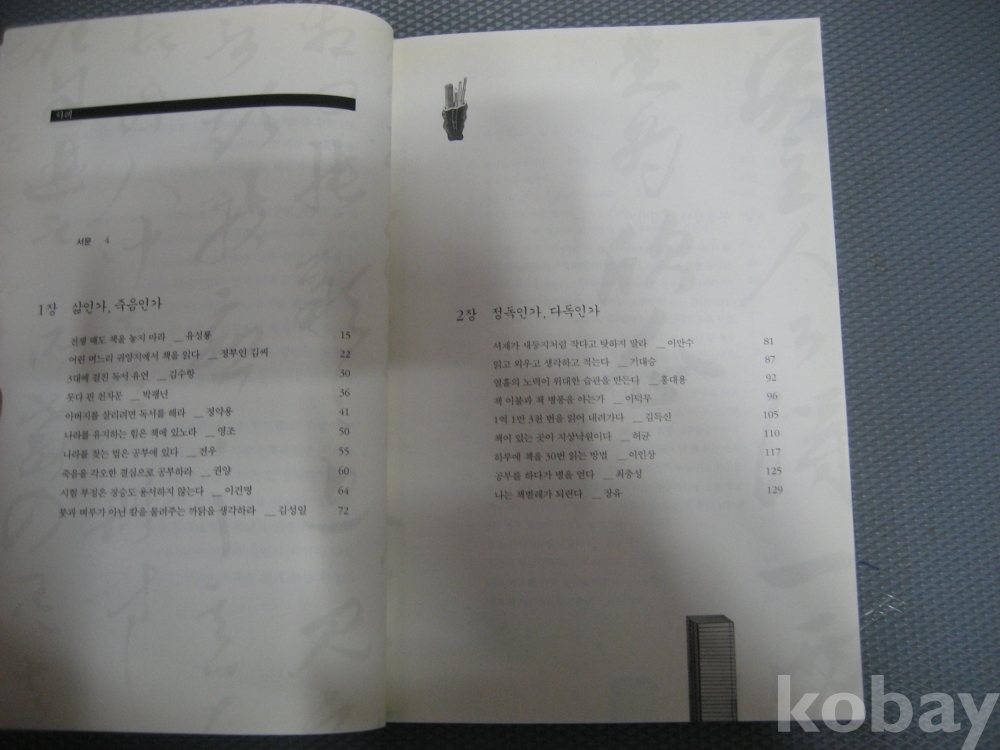 차례
서문 4
1장 삶인가, 죽음인가
전쟁 때도 책을 놓지 마라 __유성룡 15
어린 며느리 귀양지에서 책을 읽다 __정부인 김씨 22
3대에 걸친 독서 유언 __김수항 30
못다 핀 천자문 __박팽년 36
아버지를 살리려면 독서를 해라 __정약용 41
나라를 유지하는 힘은 책에 있노라 __영조 50
나라를 찾는 법은 공부에 있다 __전우 55
죽음을 각오한 결심으로 공부하라 __권양 60
시험 부정은 정승도 용서하지 않는다 __이건명 64
붓과 벼루가 아닌 칼을 물려주는 까닭을 생각하라 __김성일 72
2장 정독인가, 다독인가
서재가 새둥지처럼 작다고 탓하지 말라 __이만수 81
읽고 외우고 생각하고 적는다 __기대승 87
열흘의 노력이 위대한 습관을 만든다 __홍대용 92
책 이불과 책 병풍을 아는가 __이덕무 96
1억 1만 3천 번을 읽어 내려가다 __김득신 105
책이 있는 곳이 지상낙원이다 __허균 110
하루에 책을 30번 읽는 방법 __이인상 117
공부를 하다가 병을 얻다 __최충성 125
나는 책벌레가 되련다 __장유 129
kobay